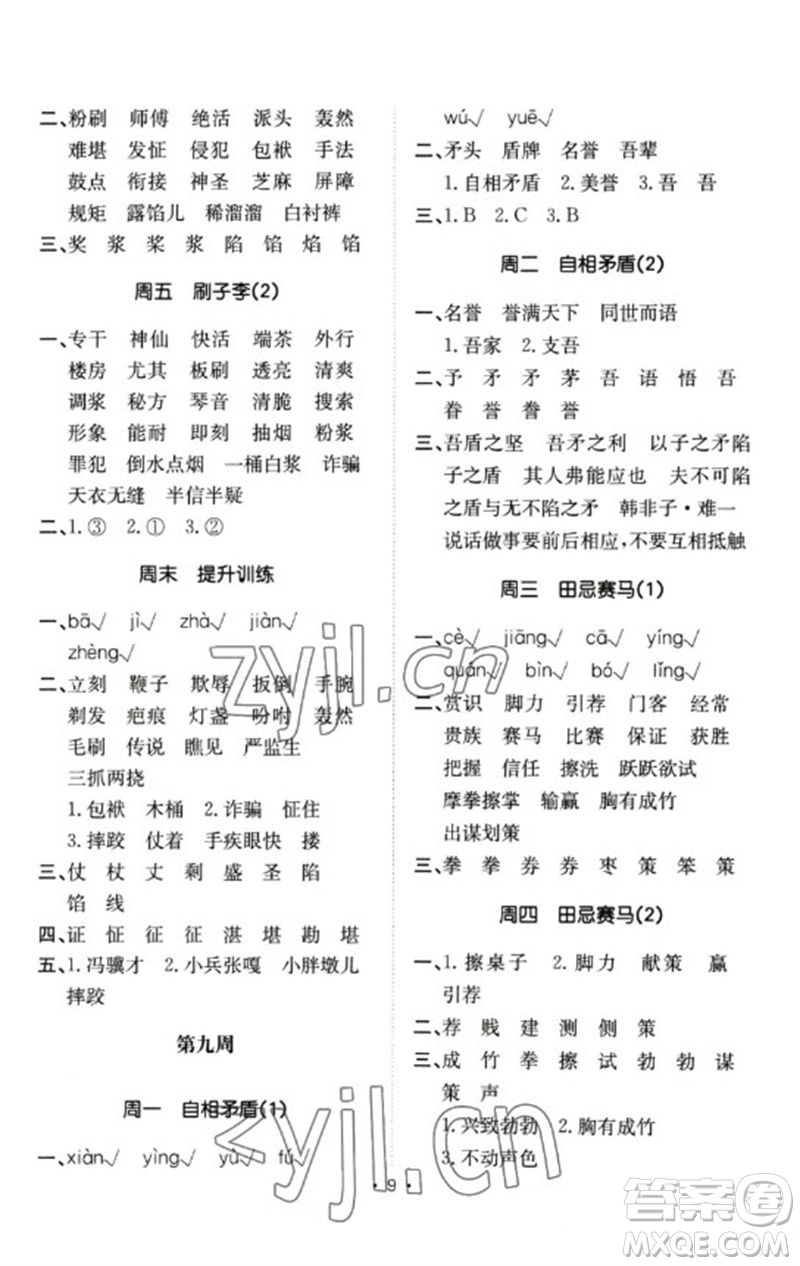 二、粉刷 师傅 绝活 派头 轰然
难堪 发怔 侵犯 包袱 手法
鼓点 衔接 神圣 芝麻 屏障
规矩 露馅儿 稀溜溜 白衬裤
三、奖 浆 桨 浆 陷 馅 焰 馅
周五 刷子李(2)
一、专干 神仙 快活 端茶 外行
楼房 尤其 板刷 透亮 清爽
调浆 秘方 琴音 清脆 搜索
形象 能耐 即刻 抽烟 粉浆
罪犯 倒水点烟 一桶白浆 诈骗
天衣无缝 半信半疑
二、1.③ 2.① 3.②
周末 提升训练
一、bā√ jì√ zhà√ jiàn√
zhèng√
二、立刻 鞭子 欺辱 扳倒 手腕
剃发 疤痕 灯盏 吩咐 轰然
毛刷 传说 瞧见 严监生
三抓两挠
1.包袱 木桶 2.诈骗 怔住
3.摔跤 仗着 手疾眼快 搂
三、仗 杖 丈 剩 盛 圣 陷
馅 线
四、证 怔 征 征 湛 堪 勘 堪
五、1.冯骥才 2.小兵张嘎 小胖墩儿
摔跤
第九周
周一 自相矛盾(1)
一、xiàn√ yìng√ yù√ fú√
wú√ yuē√
二、矛头 盾牌 名誉 吾辈
1.自相矛盾 2.美誉 3.吾 吾
三、1.B 2.C 3.B
周二 自相矛盾(2)
一、名誉 誉满天下 同世而语
1.吾家 2.支吾
二、予 矛 矛 茅 吾 语 悟 吾
眷 誉 誊 誉
三、吾盾之坚 吾矛之利 以子之矛陷
子之盾 其人弗能应也 夫不可陷
之盾与无不陷之矛 韩非子·难一
说话做事要前后相应,不要互相抵触
周三 田忌赛马(1)
一、cè√ jiāng√ cā√ yíng√
quán√ bìn√ bó√ lǐng√
二、赏识 脚力 引荐 门客 经常
贵族 赛马 比赛 保证 获胜
把握 信任 擦洗 跃跃欲试
摩拳擦掌 输赢 胸有成竹
出谋划策
三、拳 拳 券 券 枣 策 笨 策
周四 田忌赛马(2)
一、1.擦桌子 2.脚力 献策 赢
引荐
二、荐 贱 建 测 侧 策
三、成 竹 拳 擦 试 勃 勃 谋
策 声
1.兴致勃勃 2.胸有成竹
3.不动声色
·9·
zyjl.cn
zyjl.cn
答案卷
MXQE.COM